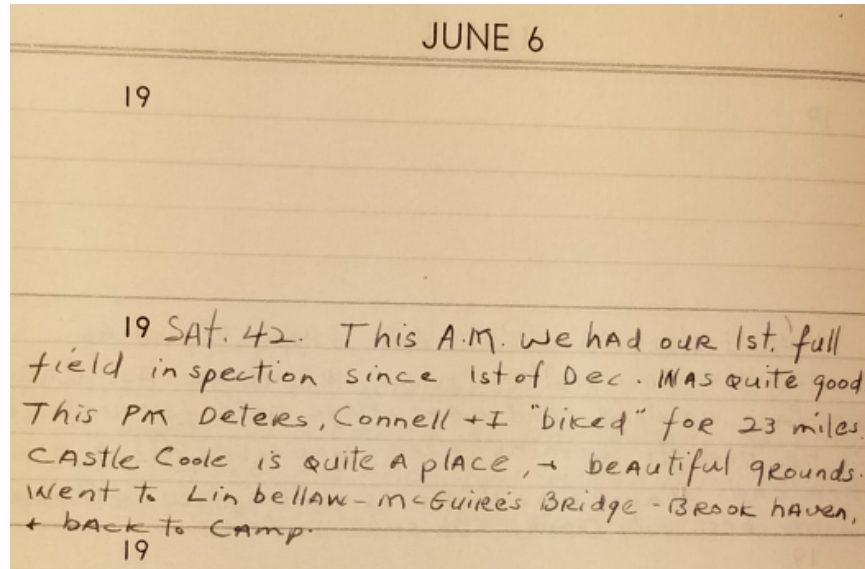 JUNE 6
19
19 SAt. 42. This A.M. we hAd ouR 1st. full
field inspection since 1st of Dec. WAS quite good
This PM Deters, Connell + I "biked" for 23 miles.
CAstle Coole is quite A plACe, + beAutiful gRounds.
Went to LinbellAw - McGuiRe's BRidge - BRook hAven,
+ bAck to CAmp.
19